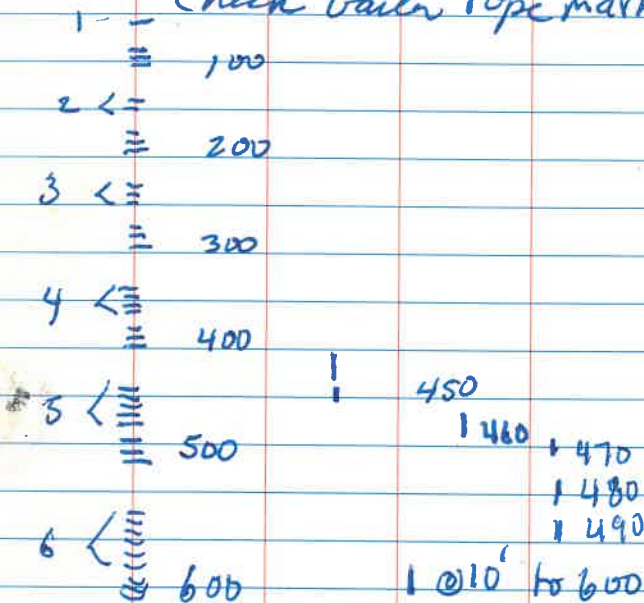 Check bailer rope mark
1 -
100
2 <
200
3 <
300
4 <
400
450
5 <
460
500 470
480
490
6 <
600 1 @ 10' to 600